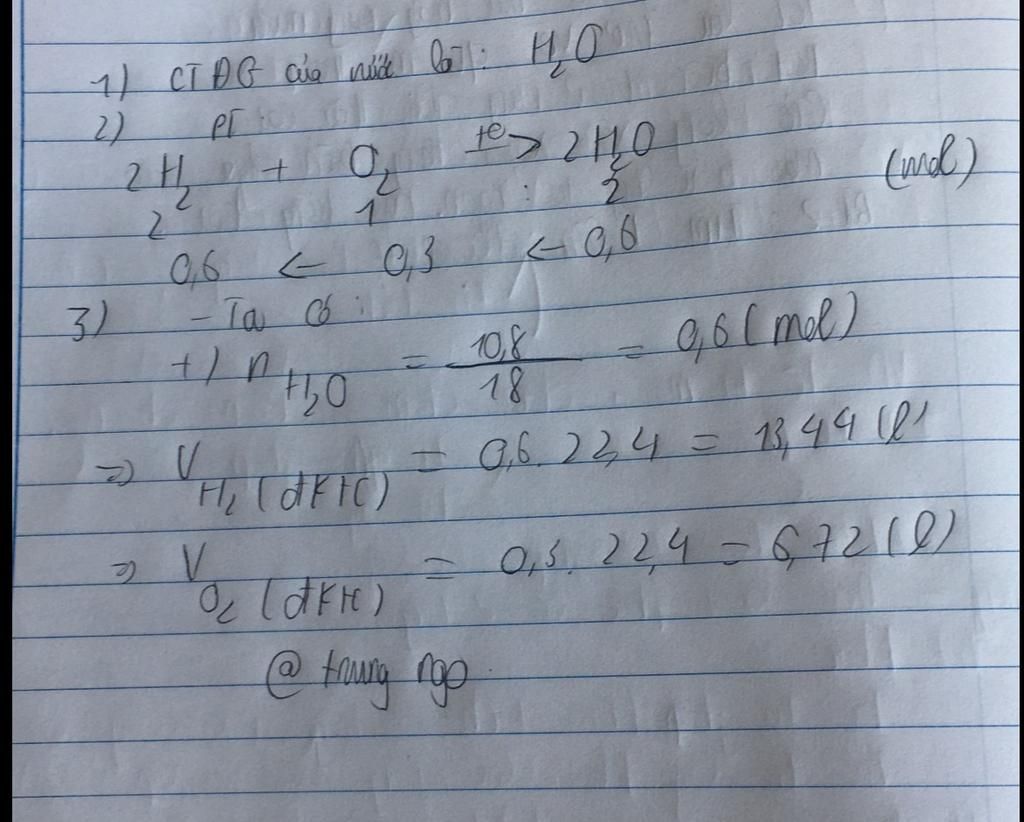 1) CTĐG của nước là: H₂O
2) PT
2H₂ + O₂ t°> 2H₂O
2 1 : 2 (mol)
0,6 ← 0,3 ← 0,6
3) - Ta có:
+) n H₂O = 10,8/18 = 0,6 (mol)
=> V H₂ (đktc) = 0,6. 22,4 = 13,44 (l)
=> V O₂ (đktc) = 0,3. 22,4 = 6,72 (l)
@ trung ngo